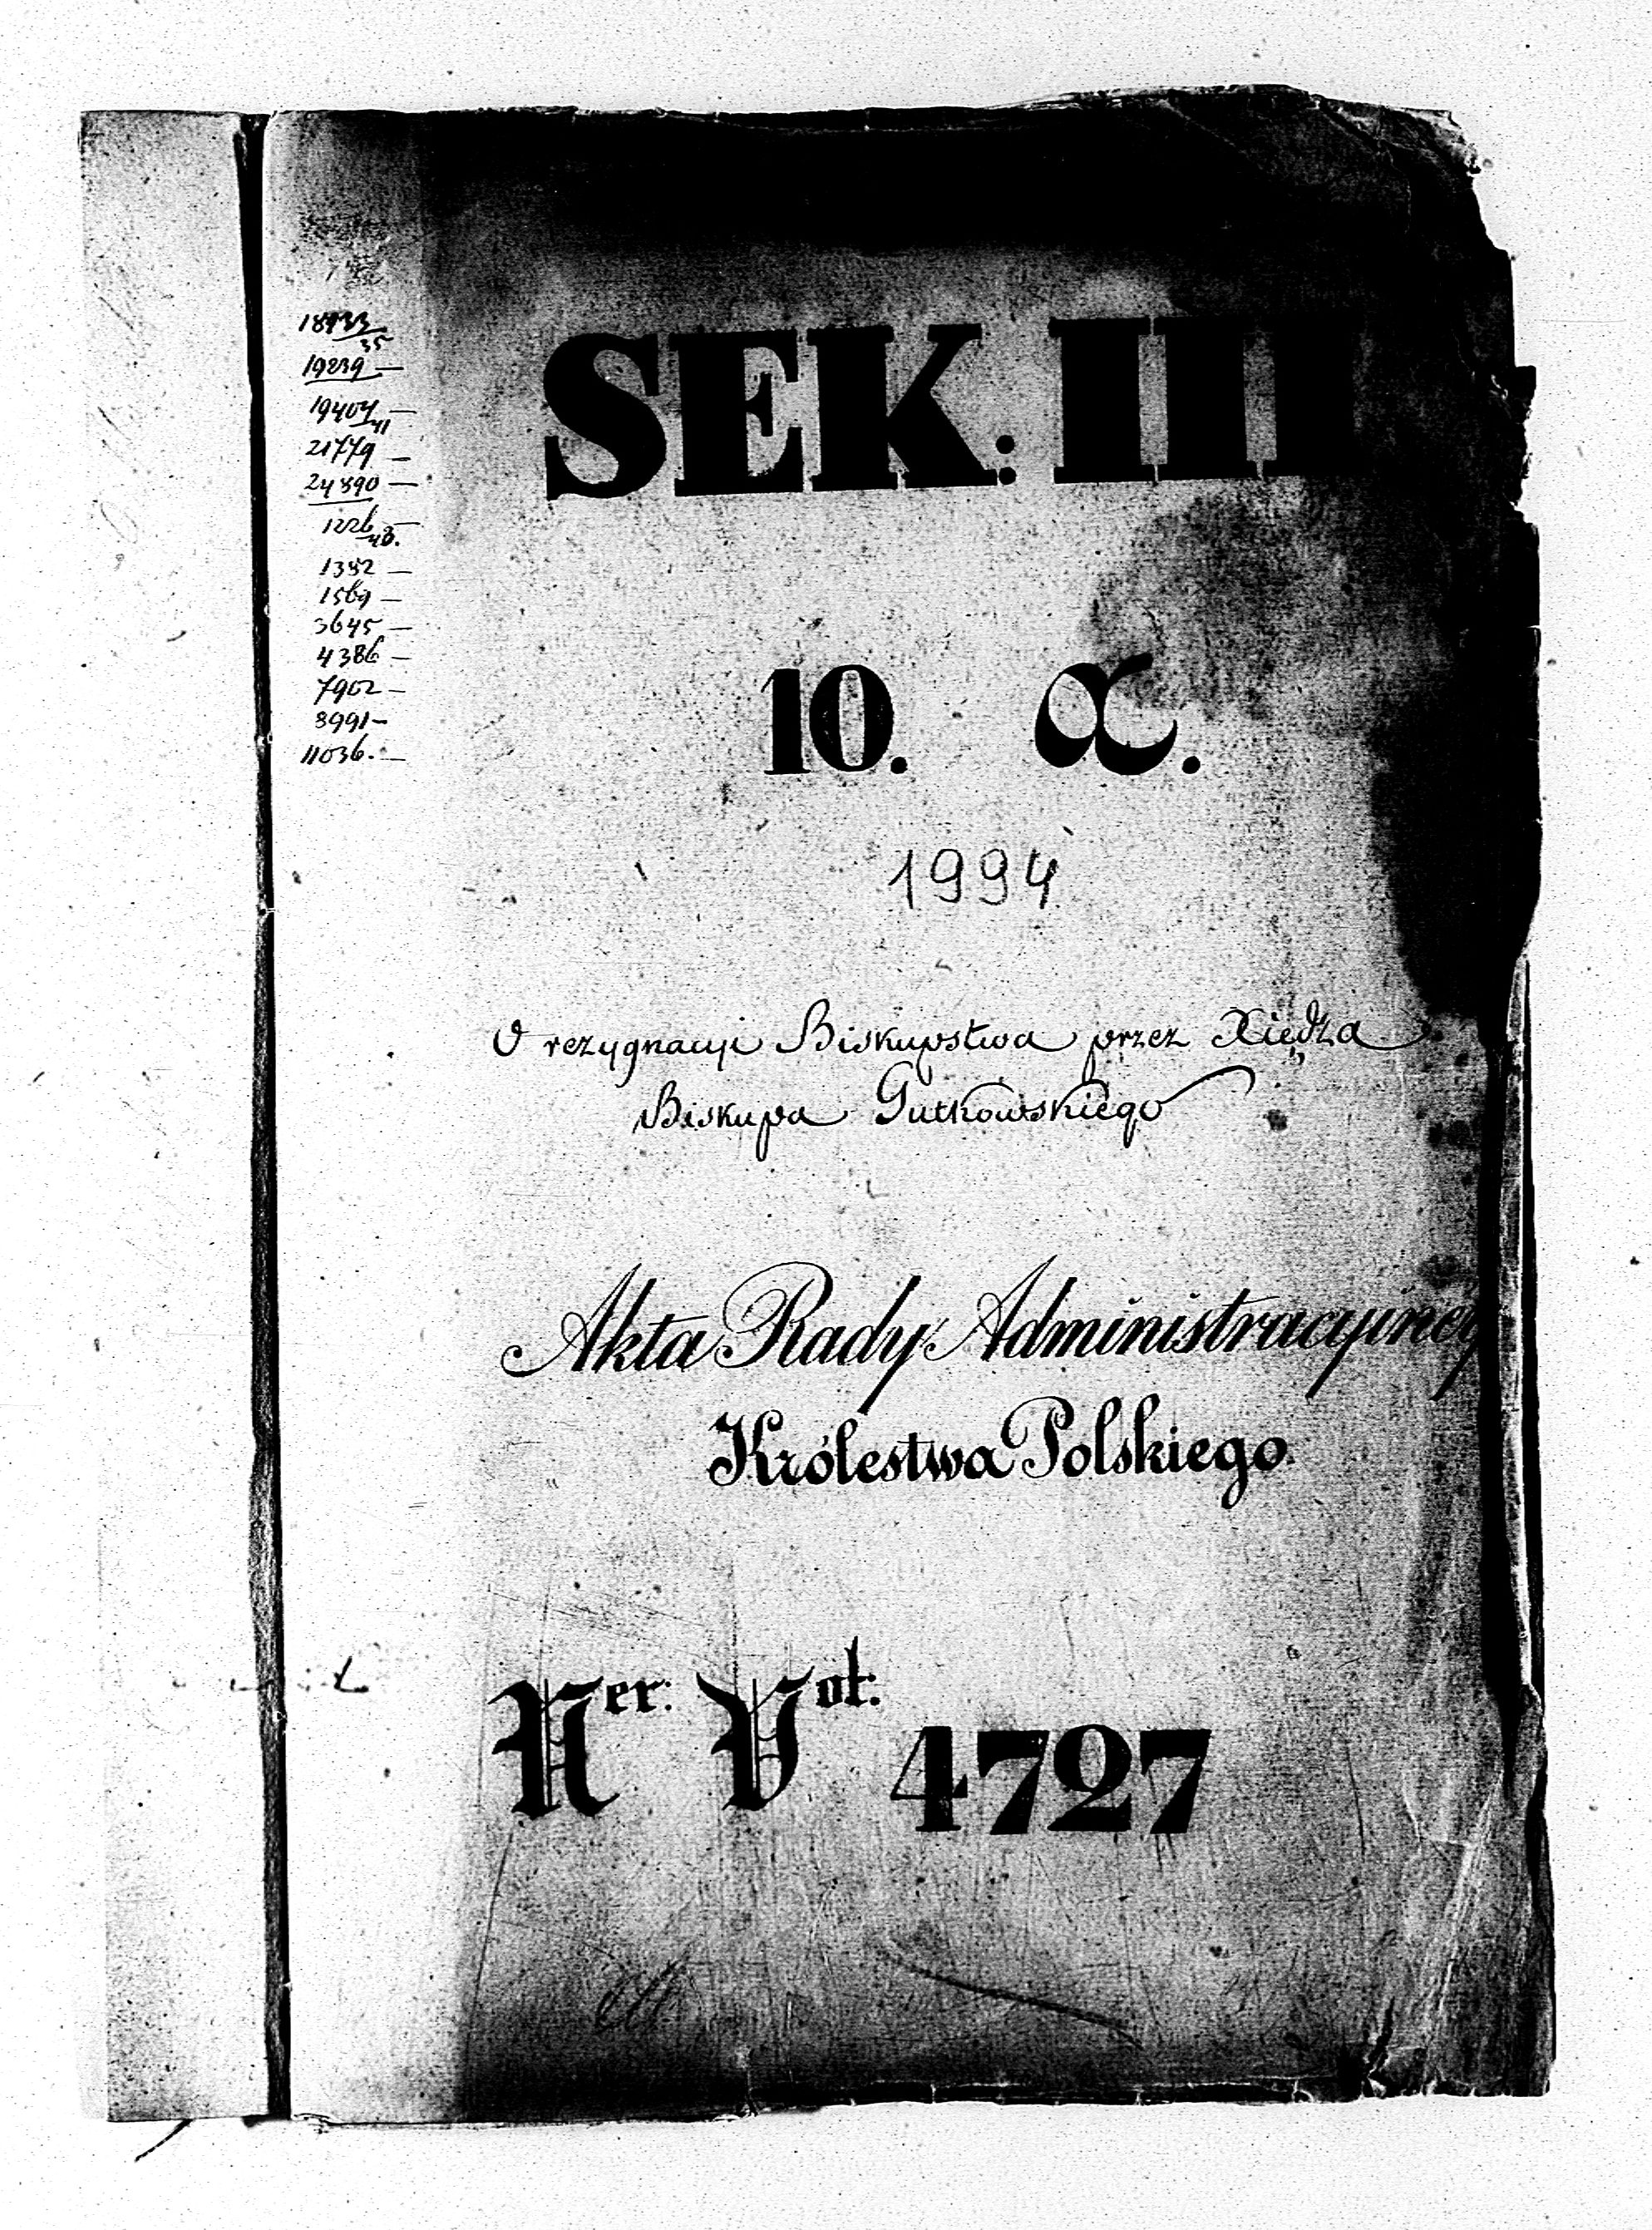 SEK: III
18933/35
19239 —
19404/41 —
21779 —
24890 —
1226/43. —
1352 —
1569 —
3645 —
4386 —
7902 —
8991 —
11036. —
10. α.
1994
O rezygnacyi Biskupstwa przez Xiędza
Biskupa Gutkowskiego
Akta Rady Administracyjney
Królestwa Polskiego
Ner: Vol: 4727